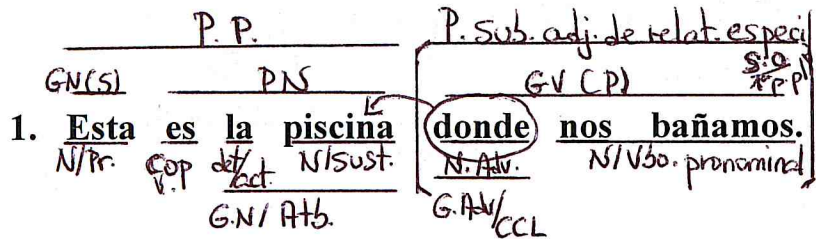 P. P. P. Sub. adj. de relat. especi
GN(S) PN GV (P) S.O 1ª p.pl
1. Esta es la piscina donde nos bañamos.
N/Pr. Cop V. det/act. N/Sust. N. Adv. N/Vbo. pronominal
G.N/Atb. G.Adv/CCL